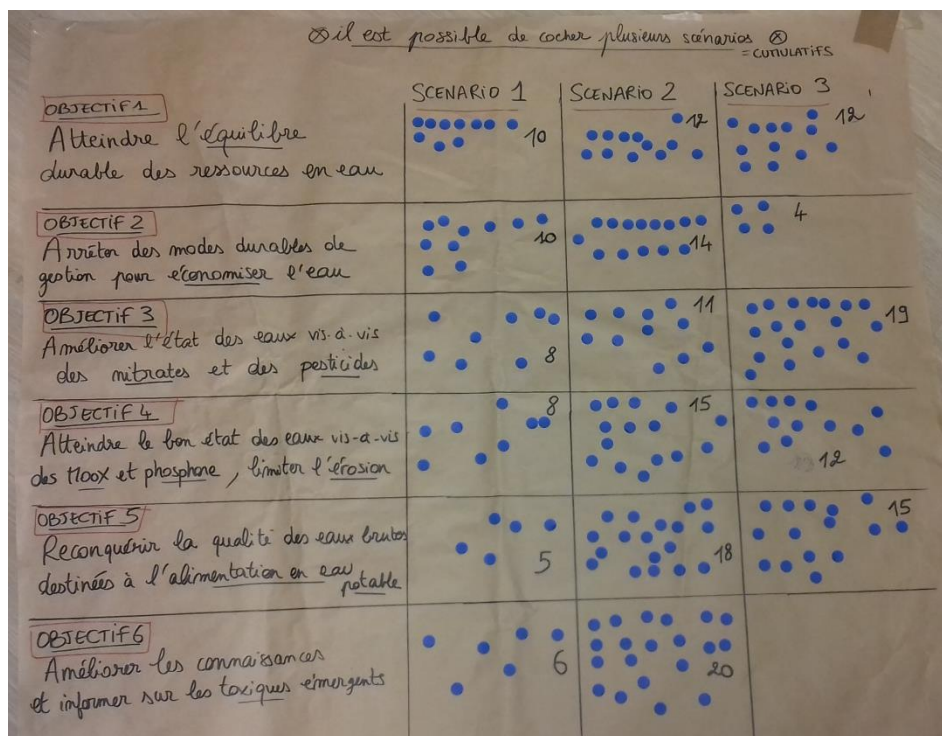 ⊗ il est possible de cocher plusieurs scénarios ⊗
= CUMULATIFS
SCENARIO 1 SCENARIO 2 SCENARIO 3
OBJECTIF 1
Atteindre l'équilibre
durable des ressources en eau
10 12 12
OBJECTIF 2
Arrêter des modes durables de
gestion pour économiser l'eau
10 14 4
OBJECTIF 3
Améliorer l'état des eaux vis-à-vis
des nitrates et des pesticides
8 11 19
OBJECTIF 4
Atteindre le bon état des eaux vis-à-vis
des Moox et phosphore, limiter l'érosion
8 15 12
OBJECTIF 5
Reconquérir la qualité des eaux brutes
destinées à l'alimentation en eau
potable
5 18 15
OBJECTIF 6
Améliorer les connaissances
et informer sur les toxiques émergents
6 20